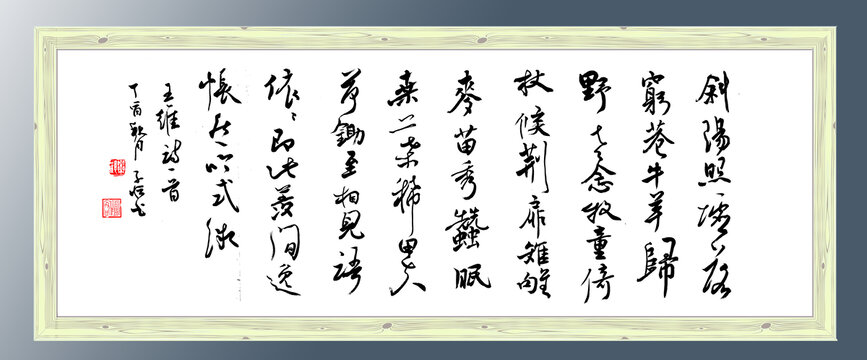 斜陽照墟落
窮巷牛羊歸
野老念牧童倚
杖候荊扉雉雊
麥苗秀蠶眠
桑葉稀田夫
荷鋤至相見語
依〻即此羨閒逸
悵然吟式微
王維詩一首
丁酉秋月子書